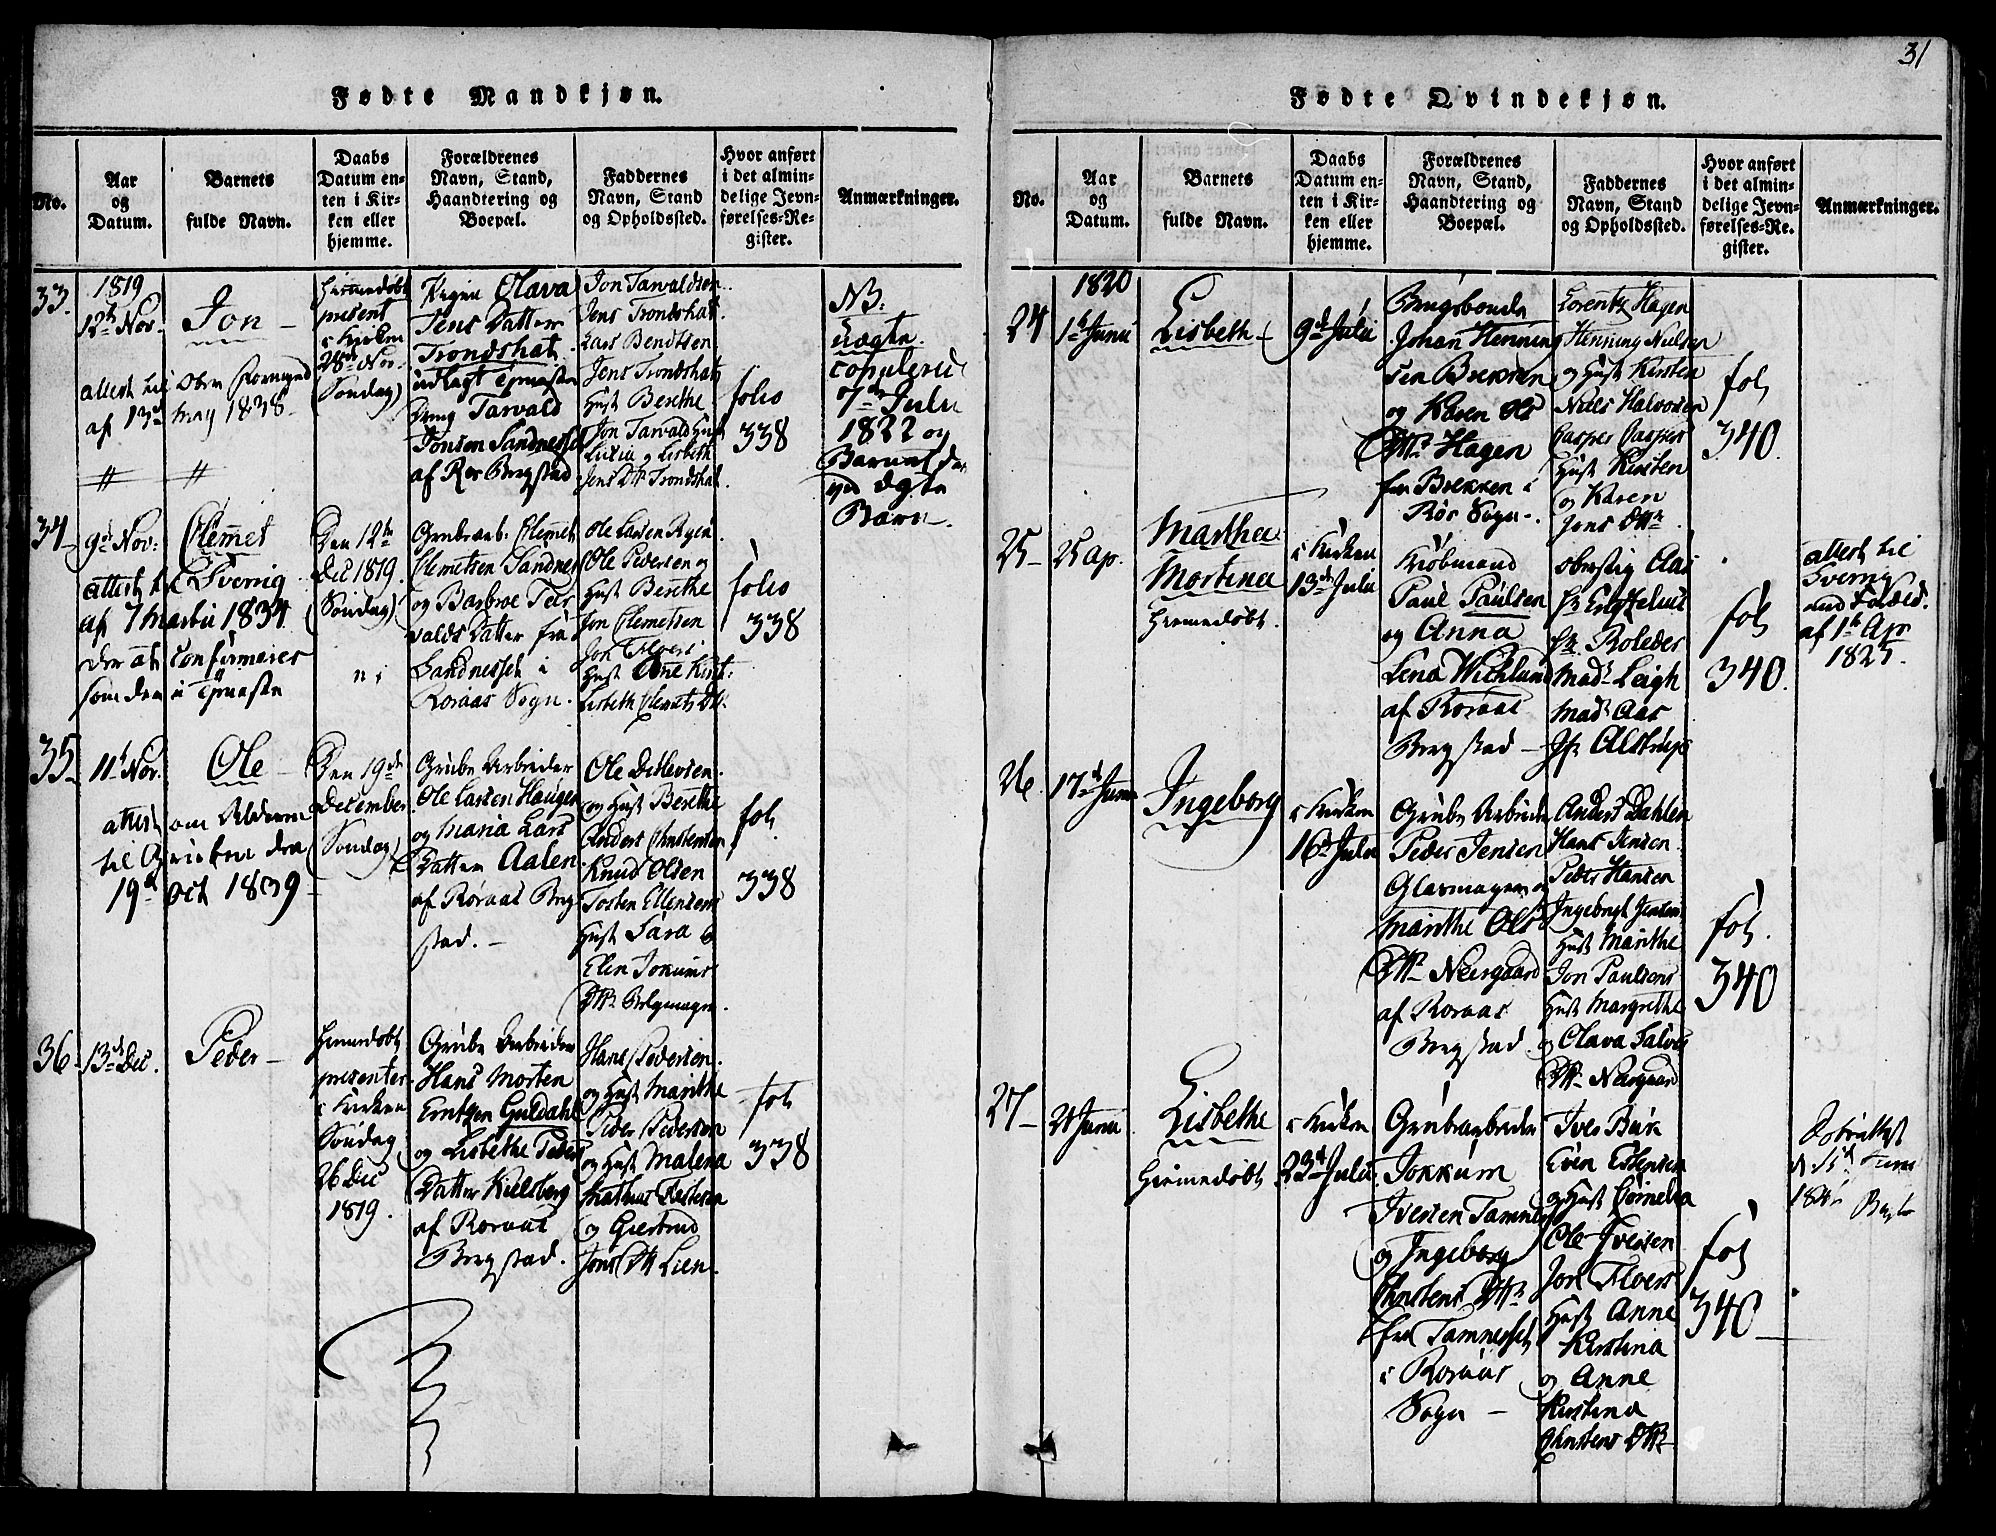 31
Fødte Mandkjøn.
No.
Aar
og
Datum.
Barnets
fulde Navn.
Daabs
Datum en-
ten i Kir-
ken eller
hjemme.
Forældrenes
Navn, Stand,
Haandtering og
Boepæl.
Faddernes
Navn, Stand
og Opholdssted.
Hvor anført
i det almin-
delige Jevn-
førelses-Re-
gister.
Anmærkninger.
33.
1819
12th Nov.
Jon
attest til
af 13d may 1838
Hiemedøbt
present
i Kirken
28de Nov
(Søndag)
Pigen Olava
Jens Datter
Trondshat
udlagt
Tarvald
Jonsen Sandnesset
af Rør Bergstad
Jon Tarvaldsen
Jens Trondshat
Lars Bendtsen
Jens Trondshat
Hust Berethe
Jon Tarvald Hust
Lucia og Lisbeth
Jens Dtr Trondshat
folio
338
NB:
uægte
copulered
7de Julii
1822 og
Barnet
ægte
Barn.
34
9de Nov:
Clemet
attest til Sverrig
af 7 Martii 1834
der at confirmeres
som den
Den 12te
Dec 1819.
(Søndag)
Grubearb. Clemet
Clemetsen Sandnes
og Barbroe Tar
valds Datter fra
Sandnesset i
Roraas Sogn.
Ole Larsen Rygen
Ole Pedersen og
Hust Berethe
Jon Clemetsen
Jon Flvers
Hust Anne Kirst:
Lisbeth Clemets Dtr.
folio
338
35
11t Nov.
Ole
attest om Alderen
til
19d Oct 1839
Den 19de
December
(Søndag)
Grube Arbeider
Ole Larsen Haugen
og Maria Lars
Datter Aalen
af Røraas Berg
stad.
Ole Detlevsen
og Hust Berethe
Anders Christensen
Knud Olsen
Tosten Ellensens
Hust Sara og
Elen Jokums
Dtr Belgmager.
fol.
338
36
13de Dec.
Peder
Hiemedøbt
presenter.
i Kirken
Søndag
26 Dec
1819.
Grube Arbeider
Hans Morten
Erntsen Guldahl
og Lisbethe Peders
Datter Kielsberg
af Roraas
Bergstad.
Hans Pedersen
og Hust Marithe
Peder Pederson
og Hust Malena
Mathias
og Giertrud
Jons Dtr Lien.
fol
338
Fødte Qvindekjøn.
No.
Aar
og
Datum.
Barnets
fulde Navn.
Daabs
Datum en-
ten i Kir-
ken eller
hjemme.
Forældrenes
Navn, Stand,
Haandtering og
Boepæl.
Faddernes
Navn, Stand
og Opholdssted.
Hvor anført
i det almin-
delige Jevn-
førelses-Re-
gister.
Anmærkninger.
1820
24
1t Junii
Lisbeth
9d Julii
Brugsbonde
Johan Henning
sen Brekken
og Karen Ols
Dtr Hagen
fra Brekken i
Rør Sogn.
Lorentz Hagen
Henning Nielsen
og Hust Kirsten
Niels Halvorsen
Casper Caspers
Hust Kirsten
og Karen
Jens Dtr
fol
340.
25
25 Ap.
Martha
Mortina
Hiemedøbt.
i Kirken
13de Julii
Kiøbmand
Paul Paulsen
og Anna
Lena Wichlund
af Roraas
Bergstad
Obersig Aas
Hr Roleder
Mad. Leigh
Mad. Aas
Jfr Alstrup
fol
340.
attest til
Sverrig
af 1t Apr
1825.
26
17d Junii
Ingeborg
i Kirken
16d Julii
Grube Arbeider
Peder Jensen
Glasmager og
Marithe Ols
Dtr Neergaard
af Roraas
Bergstad
Anders Dahlen
Hans Jensen
Peder Hansen
Ingebrigt Jensens
Hust Marithe
Jon Paulsens
Hust Margrethe
og Olava Salves
Dtr Neergaard
fol.
340
27
21 Junii
Lisbethe
Hiemedøbt
i Kirken
23d Julii
Grubearbeider
Jokkum
Iversen Tamnes
og Ingeborg
Christens Dtr
fra Tamnesset
i Roraas
Sogn
Iver Buk
Even Estensen
og Hust Cornelia
Ole Iversen
Jon Flvers
Hust Anne
Kirstina
og Anne
Kirstina
Christens Dtr
fol
340